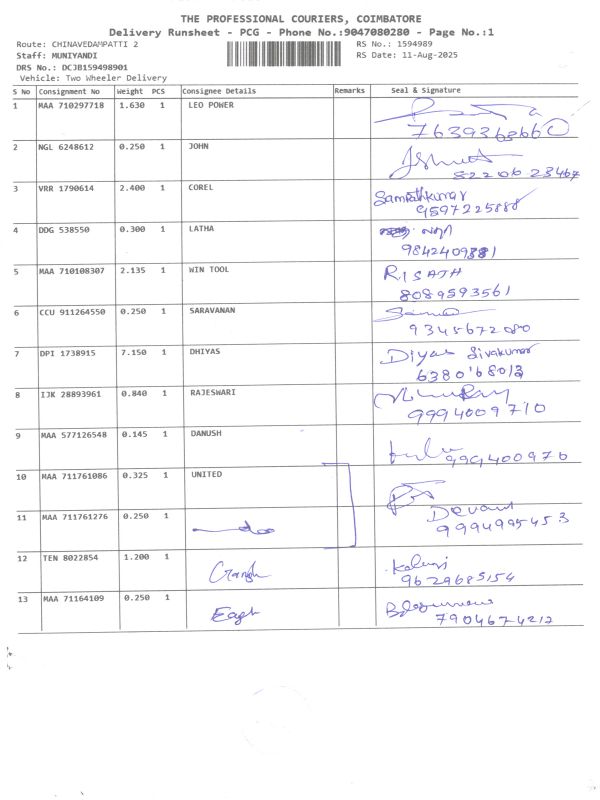 THE PROFESSIONAL COURIERS, COIMBATORE
Delivery Runsheet - PCG - Phone No.:9047080280 - Page No.:1
Route: CHINAVEDAMPATTI 2 RS No.: 1594989
Staff: MUNIYANDI RS Date: 11-Aug-2025
DRS No.: DC3B159498901
Vehicle: Two Wheeler Delivery
S No Consignment No Weight PCS Consignee Details Remarks Seal & Signature
1 MAA 710297718 1.630 1 LEO POWER
2 NGL 6248612 0.250 1 JOHN
82206 23467
3 VRR 1790614 2.400 1 COREL Sampathkumar
9597225888
4 DDG 538550 0.300 1 LATHA
9842409381
5 MAA 710108307 2.135 1 WIN TOOL RISATH
8089593561
6 CCU 911264550 0.250 1 SARAVANAN
9345672080
7 DPI 1738915 7.150 1 DHIYAS Diyas Sivakumar
8 IJK 28893961 0.840 1 RAJESWARI
9994009710
9 MAA 577126548 0.145 1 DANUSH
999400970
10 MAA 711761086 0.325 1 UNITED
11 MAA 711761276 0.250 1
9994995453
12 TEN 8022854 1.200 1
9629685154
13 MAA 71164109 0.250 1
7904674212